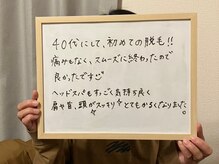 40代にして、初めての脱毛!!
痛みもなく、スムーズに終わったので
良かったです
ヘッドスパもすっごく気持ち良く
肩や首、頭がスッキリ とてもかるくなりました。